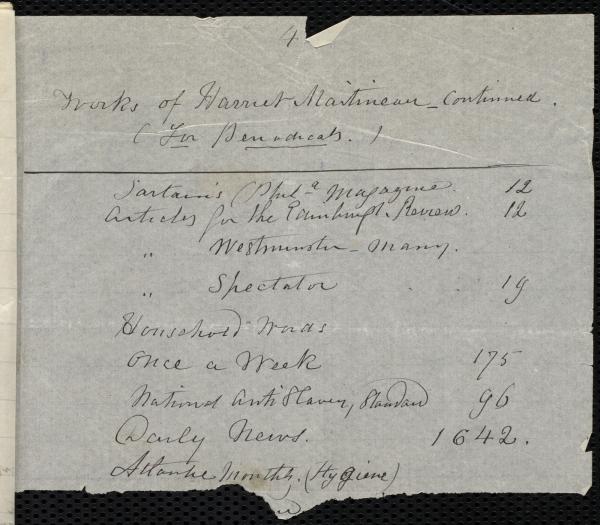 4
Works of Harriet Martineau - continued.
(For Periodicals.)
Sartain's Phila Magazine. 12
Articles for the Edinburgh Review. 12
" Westminster - many.
" Spectator 19
Household Words
Once a Week 175
National Anti Slavery Standard 96
Daily News. 1642.
Atlantic Monthly. (Hygiene)